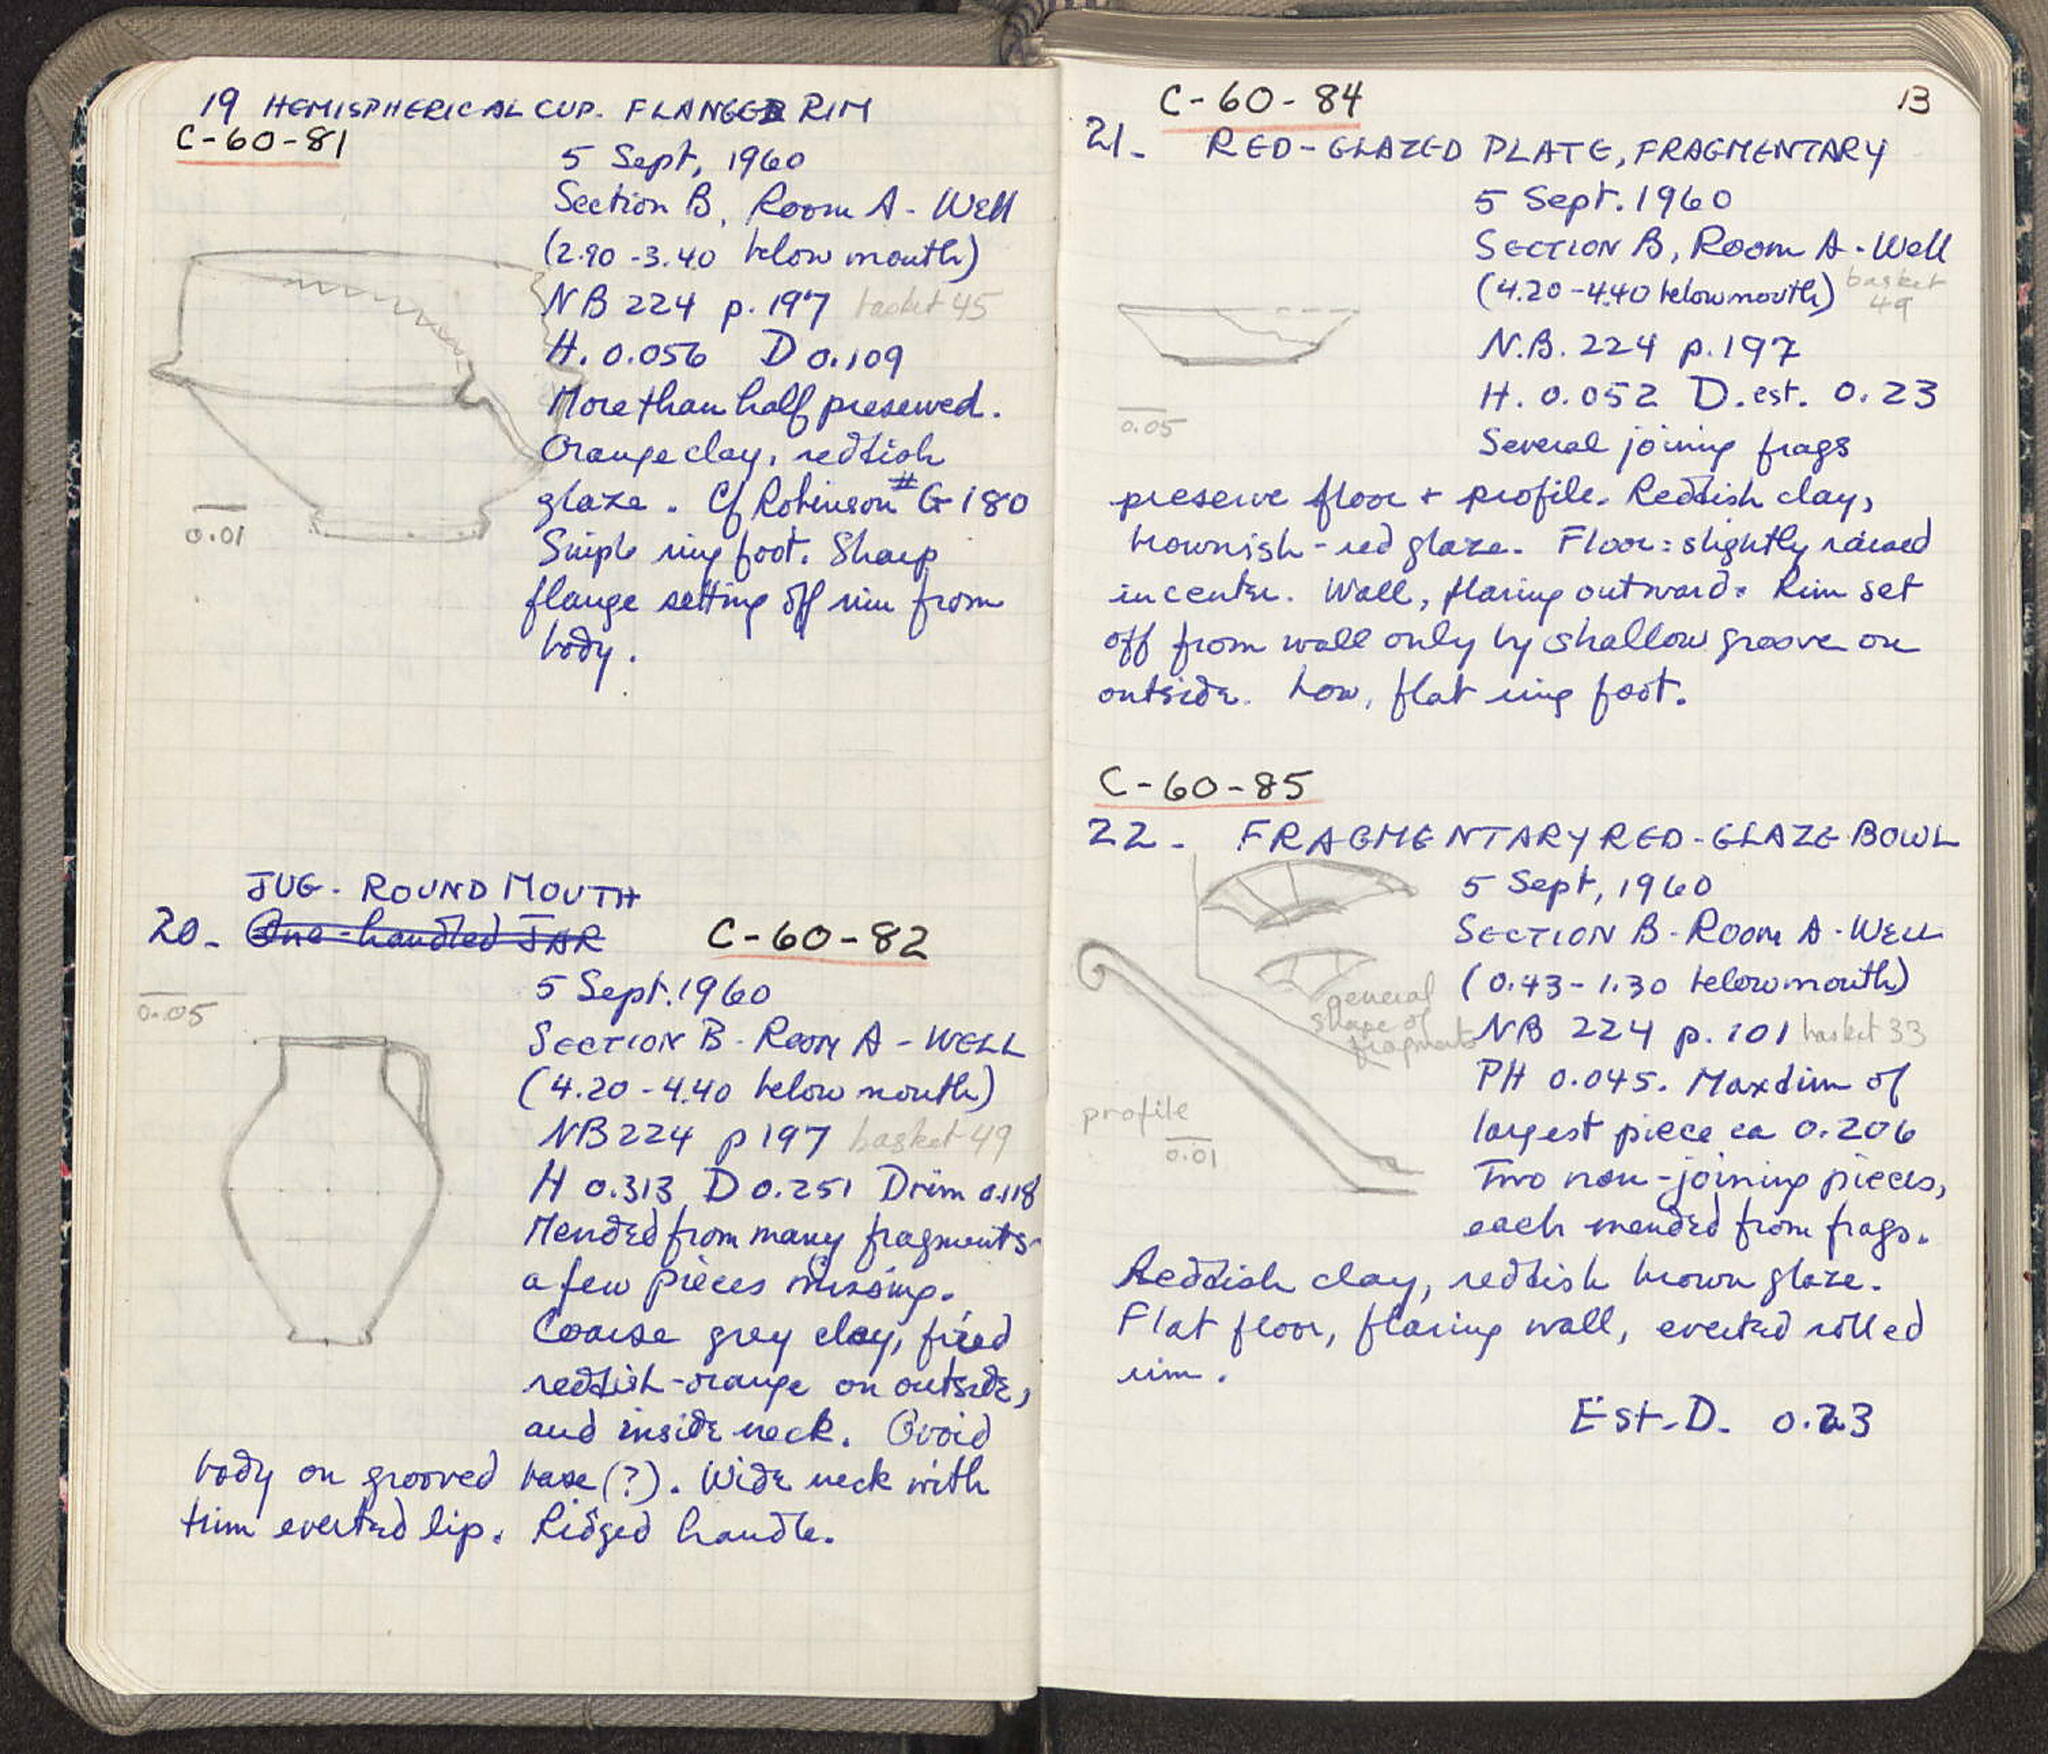 19 HEMISPHERICAL CUP. FLANGED RIM
C-60-81
5 Sept, 1960
Section B, Room A - Well
(2.90 - 3.40 below mouth)
NB 224 p. 197 basket 45
H. 0.056 D 0.109
More than half preserved.
Orange clay, reddish
glaze. Cf Robinson # G 180
Simple ring foot. Sharp
flange setting off rim from
body.
0.01
JUG - ROUND MOUTH
20. One-handled JAR C-60-82
0.05
5 Sept. 1960
SECTION B - Room A - WELL
(4.20 - 4.40 below mouth)
NB 224 p 197 basket 49
H 0.313 D 0.251 Drim 0.118
Mended from many fragments -
a few pieces missing.
Coarse grey clay, fired
reddish-orange on outside,
and inside neck. Ovoid
body on grooved base (?). Wide neck with
trim everted lip. Ridged handle.
13
C-60-84
21. RED-GLAZED PLATE, FRAGMENTARY
5 Sept. 1960
SECTION B, Room A - Well
(4.20 - 4.40 below mouth) basket 49
N.B. 224 p. 197
H. 0.052 D. est. 0.23
0.05
Several joining frags
preserve floor + profile. Reddish clay,
brownish-red glaze. Floor: slightly raised
in center. Wall, flaring outward. Rim set
off from wall only by shallow groove on
outside. Low, flat ring foot.
C-60-85
22. FRAGMENTARY RED-GLAZE BOWL
5 Sept, 1960
SECTION B - Room A - WELL
(0.43 - 1.30 below mouth)
general
shape of
fragments
NB 224 p. 101 basket 33
PH 0.045. Max dim of
largest piece ca 0.206
profile
0.01
Two non-joining pieces,
each mended from frags.
Reddish clay, reddish brown glaze.
Flat floor, flaring wall, everted rolled
rim.
Est. D. 0.23